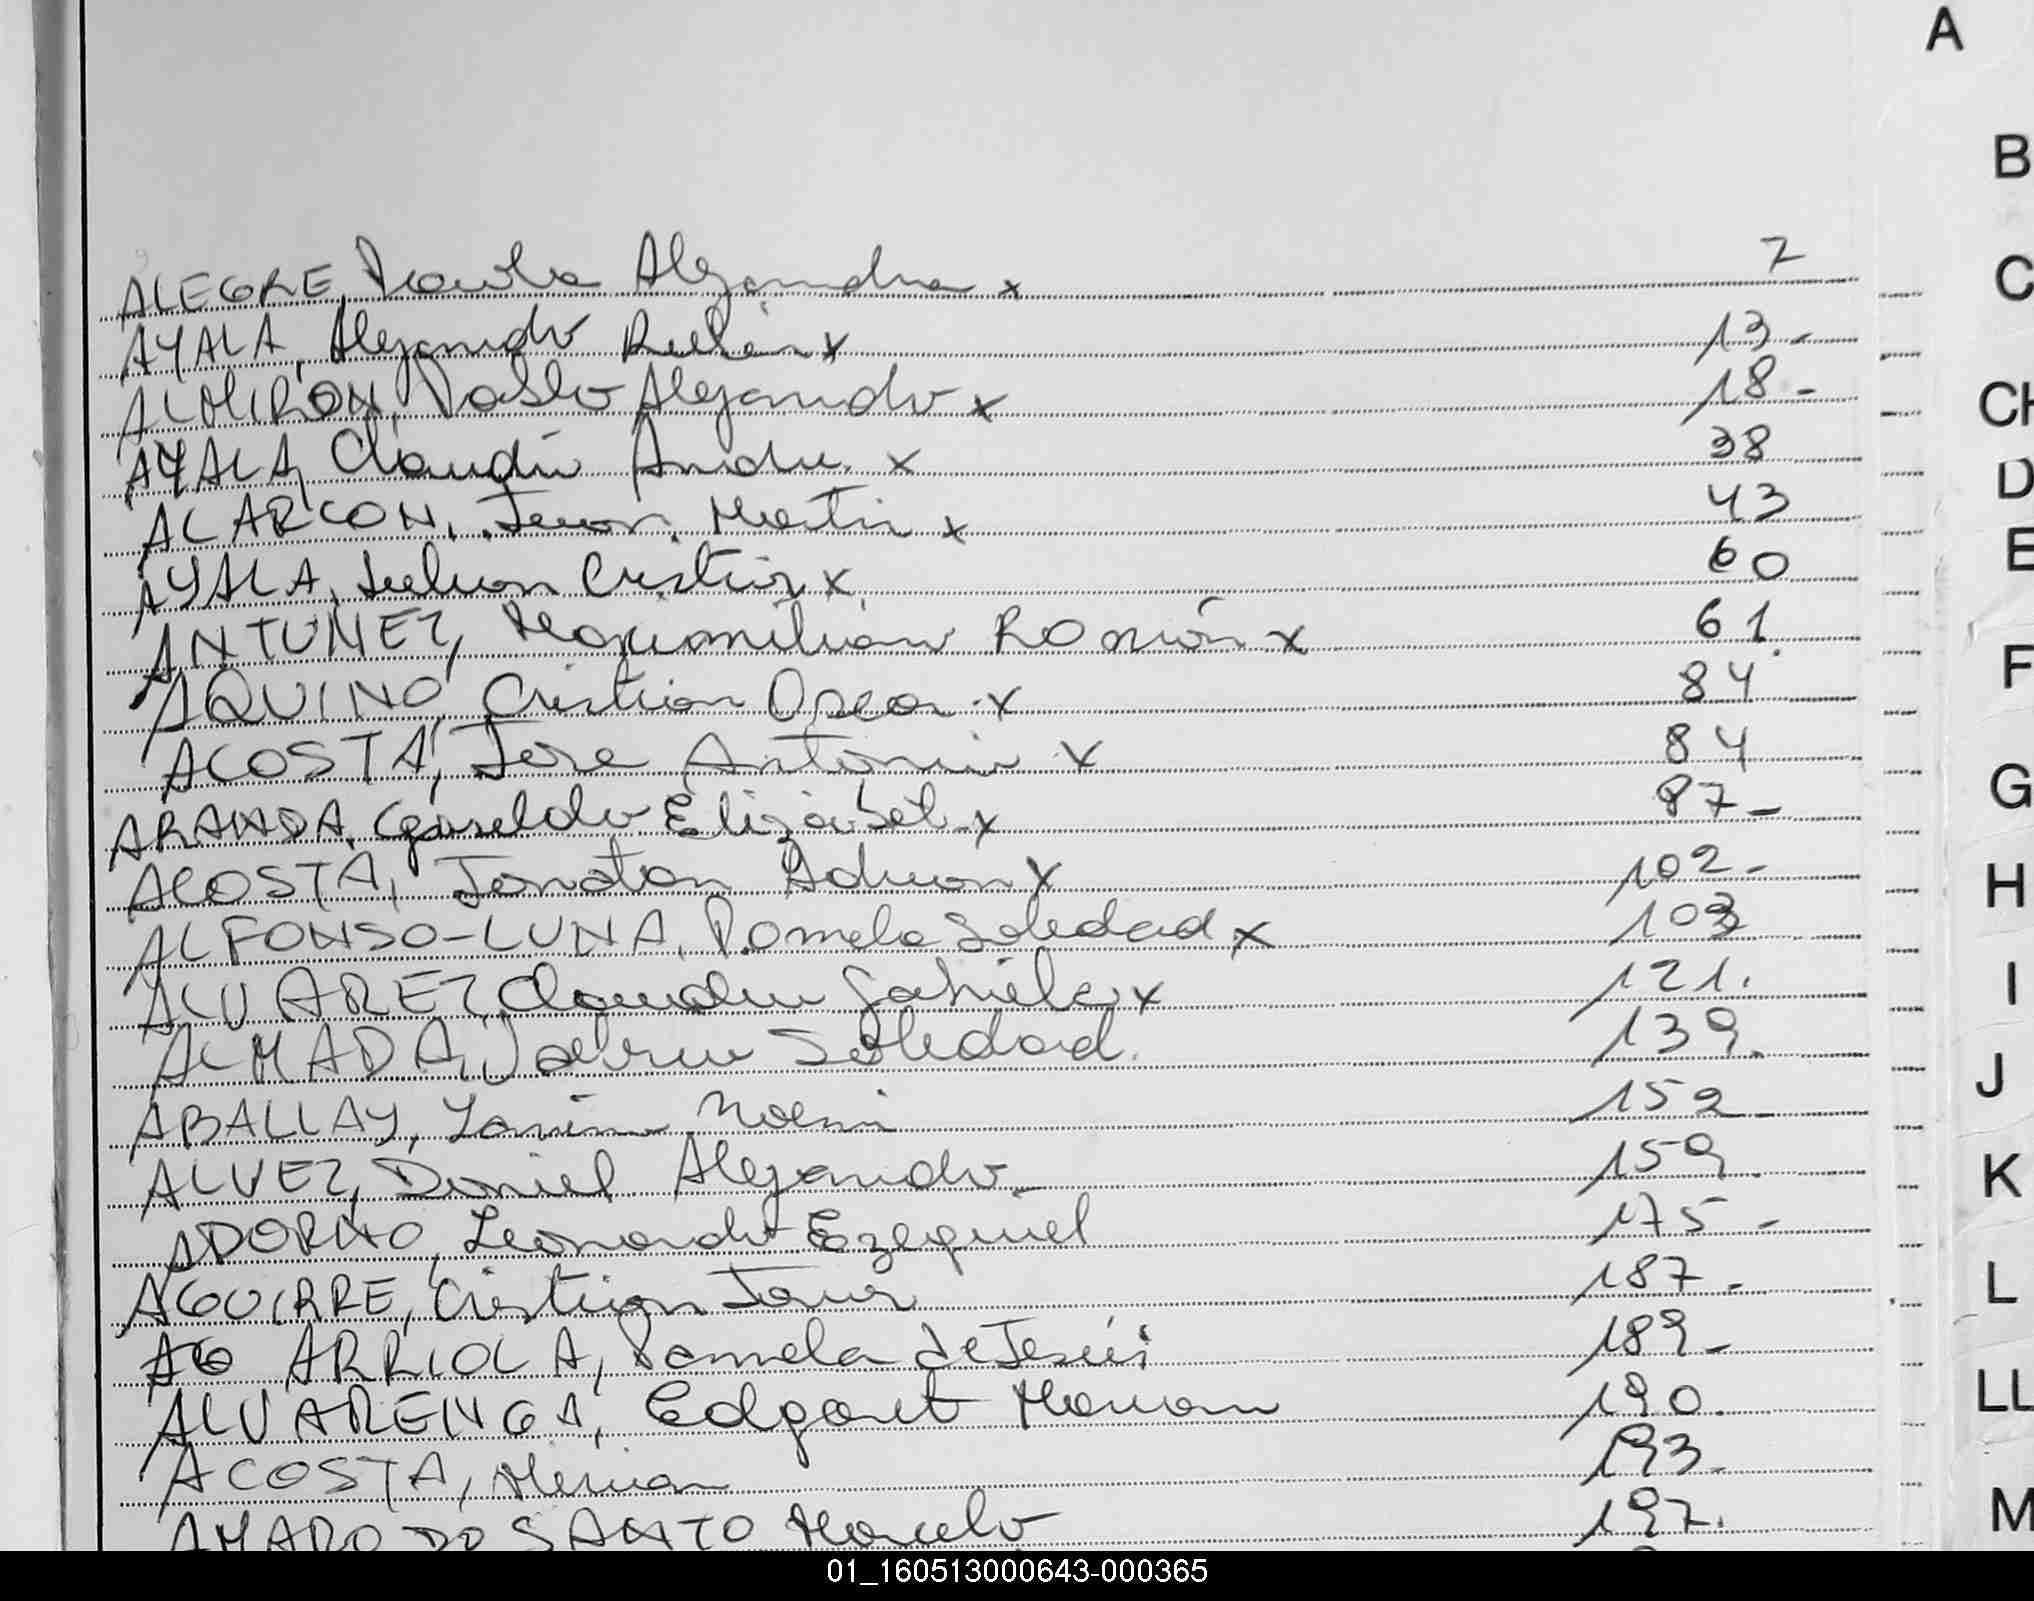 A
B
C
CH
D
E
F
G
H
I
J
K
L
LL
M
ALEGRE, Paula Alejandra x 7
AYALA, Alejandro Rubén x 13-
ALMIRON, Pablo Alejandro x 18-
AYALA, Claudio Andre. x 38
ALARCON, Juan Martin x 43
AYALA, Julian Cristian x 60
ANTUNEZ, Maximiliano Román x 61.
AQUINO, Cristian Oscar x 84
ACOSTA, Jose Antonio x 84
ARANDA, Griselda Elizabet x 87-
ACOSTA, Jonatan Adrian x 102-
ALFONSO-LUNA, Pamela Soledad x 103
ALVAREZ, Claudia Gabriela x 121.
ALMADA, Valeria Soledad. 139.
ABALLAY, Yanina Noemi 152-
ALVEZ, Daniel Alejandro- 159.
ADORNO, Leonardo Ezequiel 175-
AGUIRRE, Cristian Javier 187-
ARRIOLA, Pamela de Jesús 189-
ALVARENGA, Edgart Hernan 190.
ACOSTA, Hernan 193-
AMARO DO SANTO Marcelo 197.
01_160513000643-000365